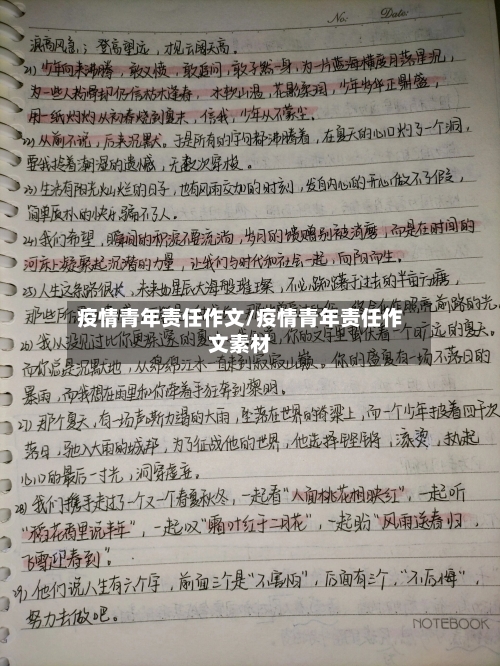 No:    Date:
浪高风急;登高望远,才见云阔天高。
21) 少年向来沸腾,敢又愤,敢追问,敢孑然一身,为一片蓝海横度月落星沉,
为一些人枯骨却仍信枯木逢春,水软山温,花影柔润,少年岁华正鼎盛,
用一纸灼灼从初春烧到夏末,信我,少年从不蒙尘。
22) 从前不说,后来沉默。于是所有的字句都沸腾着,在夏天的心口灼了一个洞,
要我挨着潮湿的遗憾,无数次穿梭。
23) 生活有阳光灿烂的日子,也有风雨交加的时刻,发自内心的开心做不了假,
简单质朴的快乐骗不了人。
24) 我们希望,瞬间的积淀不要流淌,岁月的馈赠别被消磨,而是在时间的
河床上凝聚起沉潜的力量,让我们与时代和社会一起,向阳而生。
25) 人生这条路很长,未来如星辰大海般璀璨,不必踟蹰于过去的半亩方塘,
那些所
疫情青年责任作文/疫情青年责任作
文素材
26) 我从没见过比你更
而你总是沉默地,从绵绵江水一直走到寂寂山巅。你的盛夏有一场不落日的
暴雨,而我想在雨里和你牵着手狂奔到黎明。
27) 那个夏天,有一场声嘶力竭的大雨,坠落在世界的脊梁上,而一个少年披着四千次
落日,驰入大雨的城邦,为了征战他的世界,他选择铿锵,滚烫,执起
心口的最后一寸光,洞穿虚妄。
28) 我们携手走过了一个又一个春夏秋冬,一起看“人面桃花相映红”,一起听
“稻花香里说丰年”,一起叹“霜叶红于二月花”,一起盼“风雨送春归,
飞雪迎春到”。
29) 他们说人生有六个字,前面三个是“不害怕”,后面有三个,“不后悔”,
努力去做吧。
NOTEBOOK